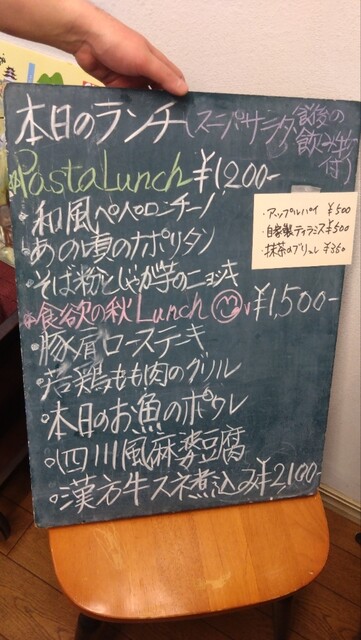 本日のランチ(スープ・サラダ 食後の
飲み物
付)
Pasta Lunch ¥1200-
・和風ペペロンチーノ
・あの頃のナポリタン
・そば粉とじゃが芋のニョッキ
・アップルパイ ¥500
・自家製ティラミス ¥500
・抹茶のブリュレ ¥350
食欲の秋 Lunch ¥1,500-
・豚肩ロースステーキ
・若鶏もも肉のグリル
・本日のお魚のポワレ
・四川風麻婆豆腐
・漢方牛スネ煮込み ¥2,100-